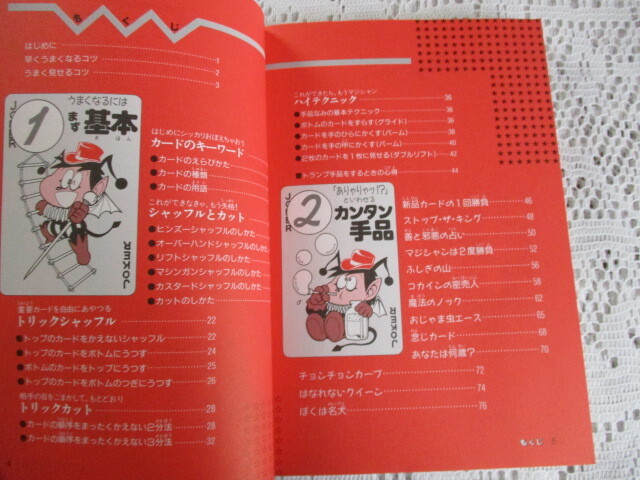 もくじ
はじめに
早くうまくなるコツ 1
うまく見せるコツ 2
3
JOKER
うまくなるには
1
まず基本
きほん
JOKER
はじめにシッカリおぼえちゃおう
カードのキーワード
●カードのえらびかた
●カードの種類
●カードの用語
これができなきゃ、もう失格!
シャッフルとカット
●ヒンズーシャッフルのしかた
●オーバーハンドシャッフルのしかた
●リフトシャッフルのしかた
●マシンガンシャッフルのしかた
●カスタードシャッフルのしかた
●カットのしかた
重要カードを自由にあやつる
トリックシャッフル 22
●トップのカードをかえないシャッフル 22
●トップのカードをボトムにうつす 24
●ボトムのカードをトップにうつす 25
●トップのカードをボトムのつぎにうつす 26
相手の目をごまかして、もとどおり
トリックカット 28
●カードの順序をまったくかえない2分法 28
●カードの順序をまったくかえない3分法 32
4
これができたら、もうマジシャン
ハイテクニック 36
●手品なみの基本テクニック 36
●ボトムのカードをずらす(グライド) 38
●カードを手のひらにかくす(パーム) 38
●カードを手の甲にかくす(パーム) 40
●2枚のカードを1枚に見せる(ダブルリフト) 42
●トランプ手品をするときの心得 44
JOKER
「ありゃりゃッ!?」
といわせる
2
カンタン
手品
JOKER
新品カードの1回勝負 46
ストップ・ザ・キング 48
善と邪悪の占い 50
マジシャンは2度勝負 52
ふしぎの山 56
コカインの密売人 58
魔法のノック 62
おじゃま虫エース 65
念じカード 68
あなたは何歳? 70
チョンチョンカーブ 72
はなれないクイーン 74
ぼくは名犬 76
もくじ 5